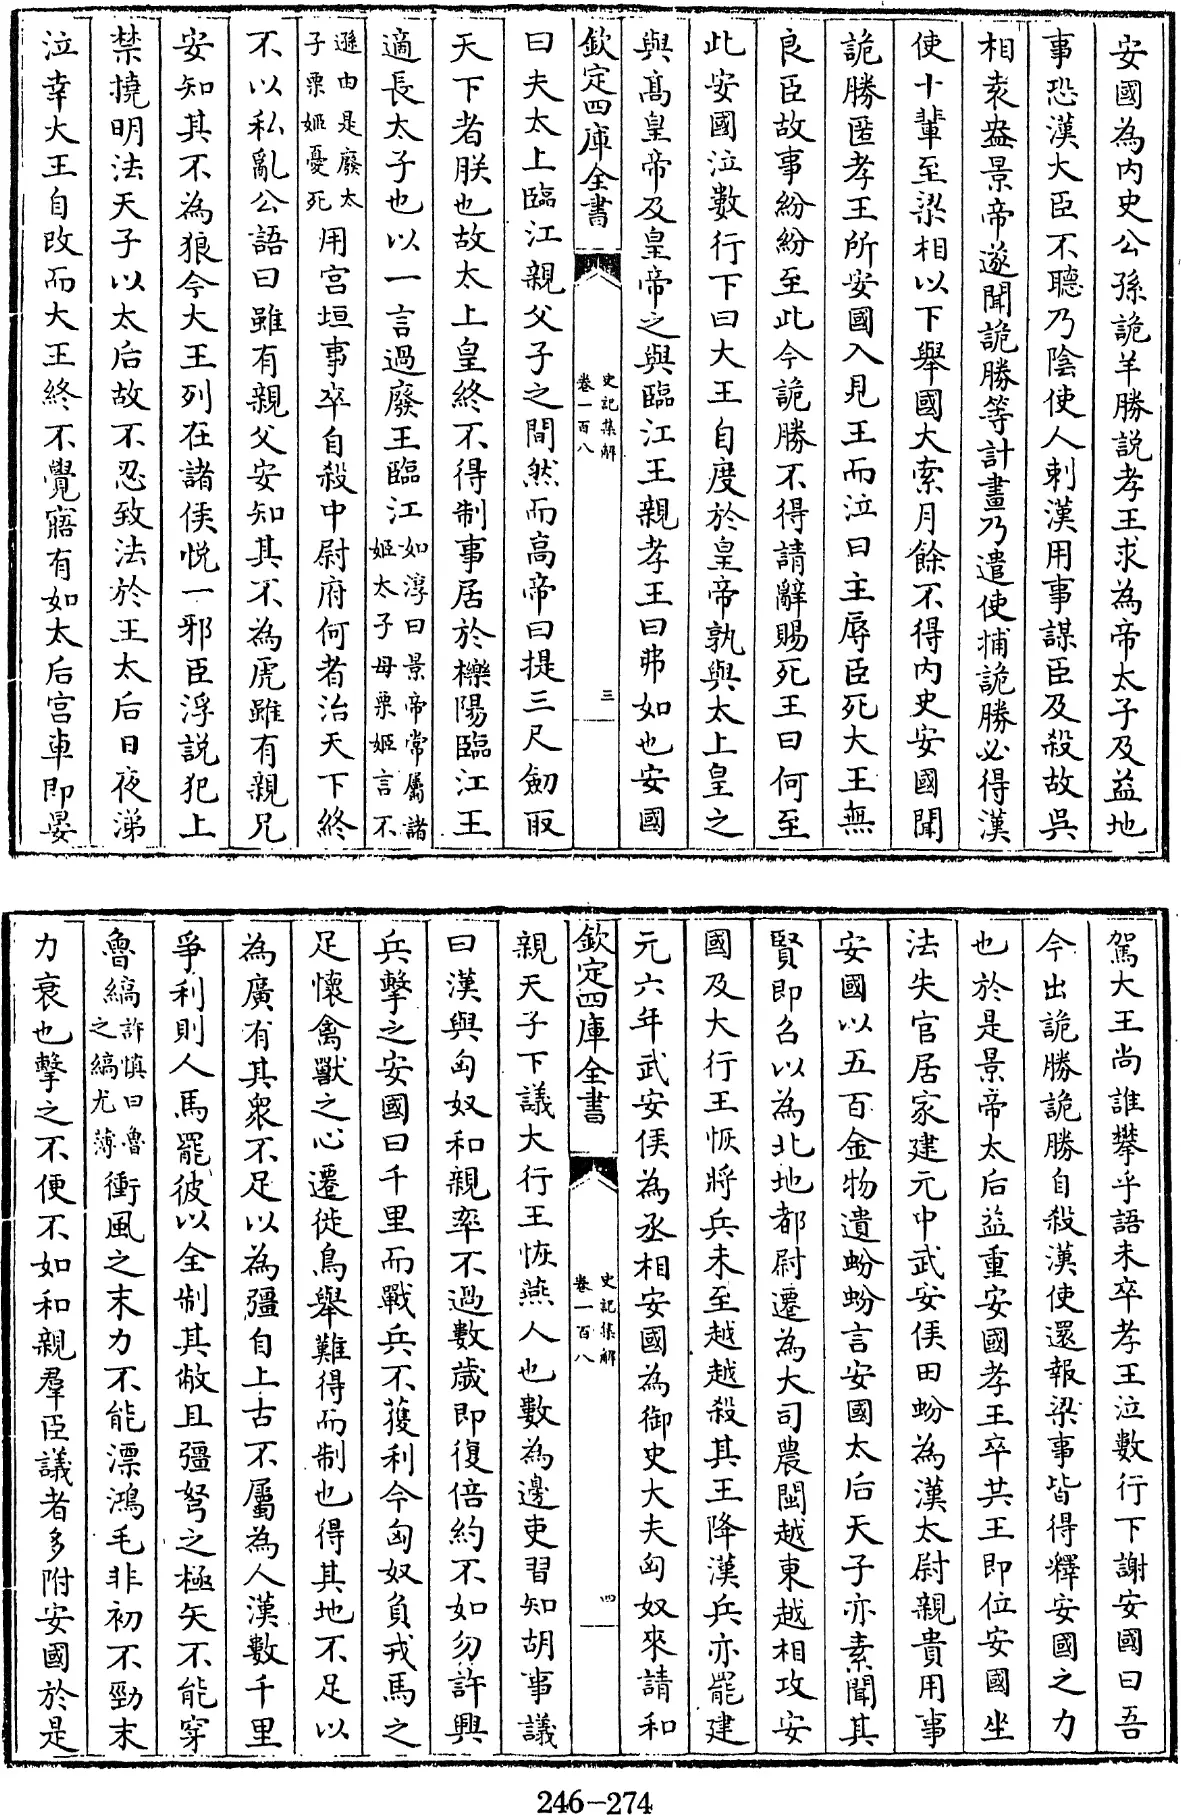 安國為内史公孫詭羊勝説孝王求為帝太子及益地
事恐漢大臣不聽乃陰使人刺漢用事謀臣及殺故吳
相袁盎景帝遂聞詭勝等計畫乃遣使捕詭勝必得漢
使十輩至梁相以下舉國大索月餘不得内史安國聞
詭勝匿孝王所安國入見王而泣曰主辱臣死大王無
良臣故事紛紛至此今詭勝不得請辭賜死王曰何至
此安國泣數行下曰大王自度於皇帝孰與太上皇之
與高皇帝及皇帝之與臨江王親孝王曰弗如也安國
欽定四庫全書
史記集解
卷一百八
三
曰夫太上臨江親父子之間然而高帝曰提三尺劒取
天下者朕也故太上皇終不得制事居於櫟陽臨江王
適長太子也以一言過廢王臨江如淳曰景帝常屬諸
姬太子母栗姬言不
遜由是廢太
子栗姬憂死用宫垣事卒自殺中尉府何者治天下終
不以私亂公語曰雖有親父安知其不為虎雖有親兄
安知其不為狼今大王列在諸侯悦一邪臣浮説犯上
禁撓明法天子以太后故不忍致法於王太后日夜涕
泣幸大王自改而大王終不覺寤有如太后宫車即晏
駕大王尚誰攀乎語未卒孝王泣數行下謝安國曰吾
今出詭勝詭勝自殺漢使還報梁事皆得釋安國之力
也於是景帝太后益重安國孝王卒共王即位安國坐
法失官居家建元中武安侯田蚡為漢太尉親貴用事
安國以五百金物遺蚡蚡言安國太后天子亦素聞其
賢即召以為北地都尉遷為大司農閩越東越相攻安
國及大行王恢將兵未至越越殺其王降漢兵亦罷建
元六年武安侯為丞相安國為御史大夫匈奴來請和
欽定四庫全書
史記集解
卷一百八
四
親天子下議大行王恢燕人也數為邊吏習知胡事議
曰漢與匈奴和親率不過數歲即復倍約不如勿許興
兵擊之安國曰千里而戰兵不獲利今匈奴負戎馬之
足懷禽獸之心遷徙鳥舉難得而制也得其地不足以
為廣有其衆不足以為彊自上古不屬為人漢數千里
爭利則人馬罷彼以全制其敝且彊弩之極矢不能穿
魯縞許慎曰魯
之縞尤薄衝風之末力不能漂鴻毛非初不勁末
力衰也擊之不便不如和親羣臣議者多附安國於是
246-274